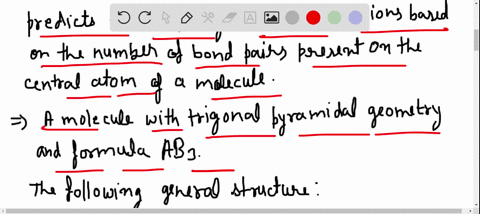 predicts ions based
on the number of bond pairs present on the
central atom of a molecule.
⇒ A molecule with trigonal pyramidal geometry
and formula AB3.
The following general structure: